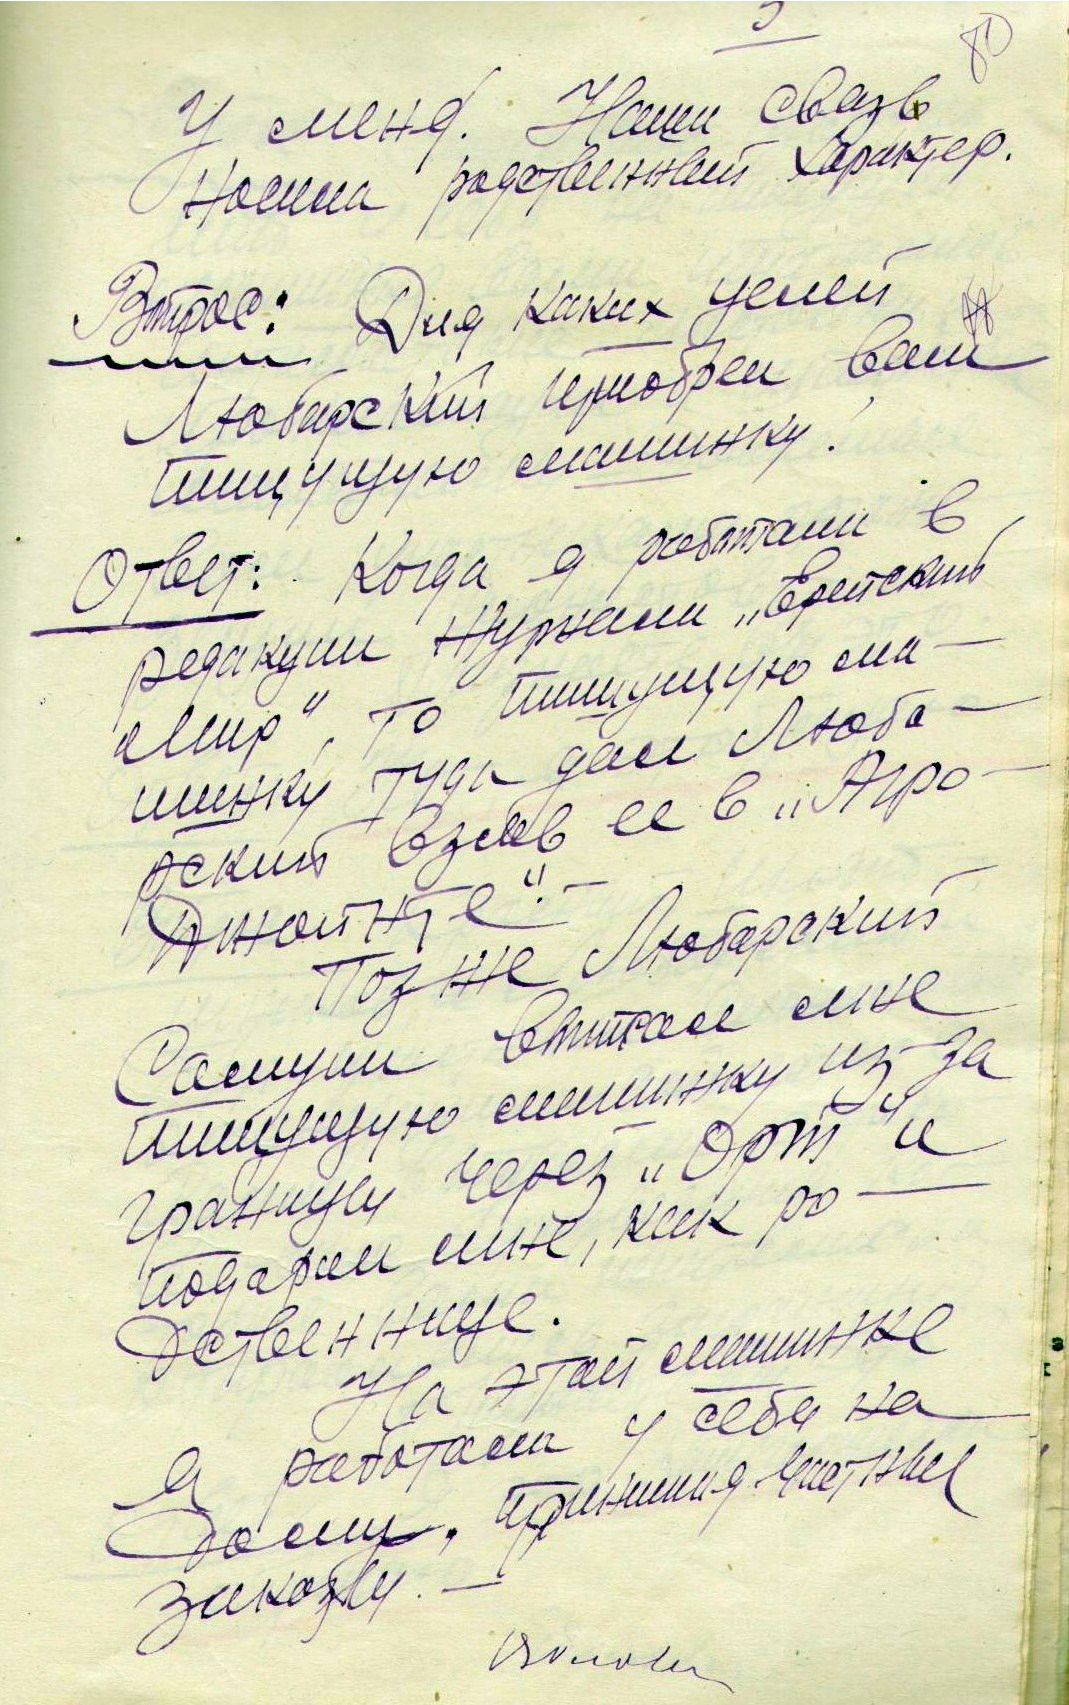 3
80
у меня. Наша связь
носила родственный характер.
Вопрос: Для каких целей
Любарский приобрел вам
пишущую машинку?
Ответ: Когда я работала в
редакции журнала „Еврейский
Мир", то пишущую ма-
шинку туда дал Люба-
рский взяв ее в „Агро-
Джойнте". –
Позже Любарский
Самуил выписал мне
пишущую машинку из-за
границы через „Орт" и
подарил мне, как ро-
дственнице.
На этой машинке
я работала у себя на
дому, принимая частные
заказы. –